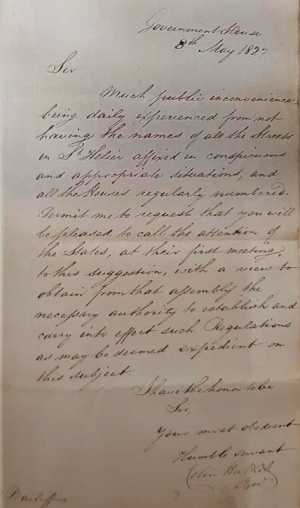 Government House
8th May 182
Sir
Much public inconvenience
being daily experienced from not
having the names of all the Streets
in St Helier affixed in conspicuous
and appropriate situations, and
all the Houses regularly numbered.
Permit me to request that you will
be pleased to call the attention of
the States, at their first meeting,
to this suggestion, with a view to
obtain from that assembly the
necessary authority to establish and
carry into effect such Regulations
as may be deemed expedient on
this subject
I have the honor to be
Sir,
Your most obedient
Humble servant
Colin Halkett